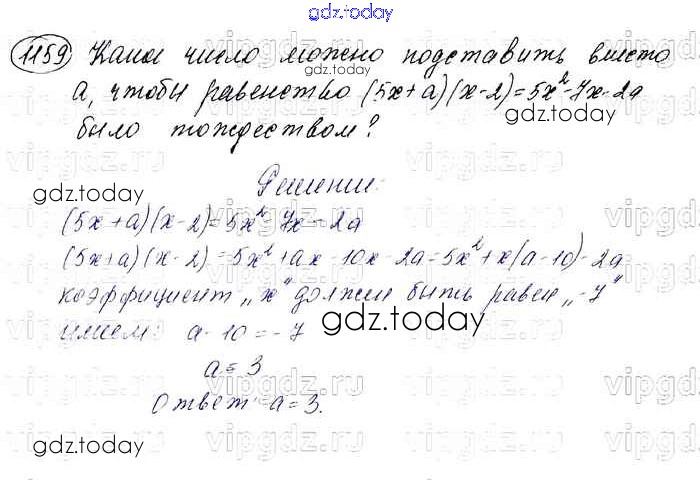 gdz.today
1159 Какое число можно подставить вместо
gdz.today
а, чтобы равенство (5x+a)(x-2)=5x²-7x-2a
gdz.today
было тождеством?
Решение:
gdz.today
(5x+a)(x-2)=5x²-7x-2a
(5x+a)(x-2)=5x²+ax-10x-2a=5x²+x(a-10)-2a
коэффициент „x" должен быть равен „-7"
имеем: a-10=-7
gdz.today
a=3
Ответ: a=3.
gdz.today